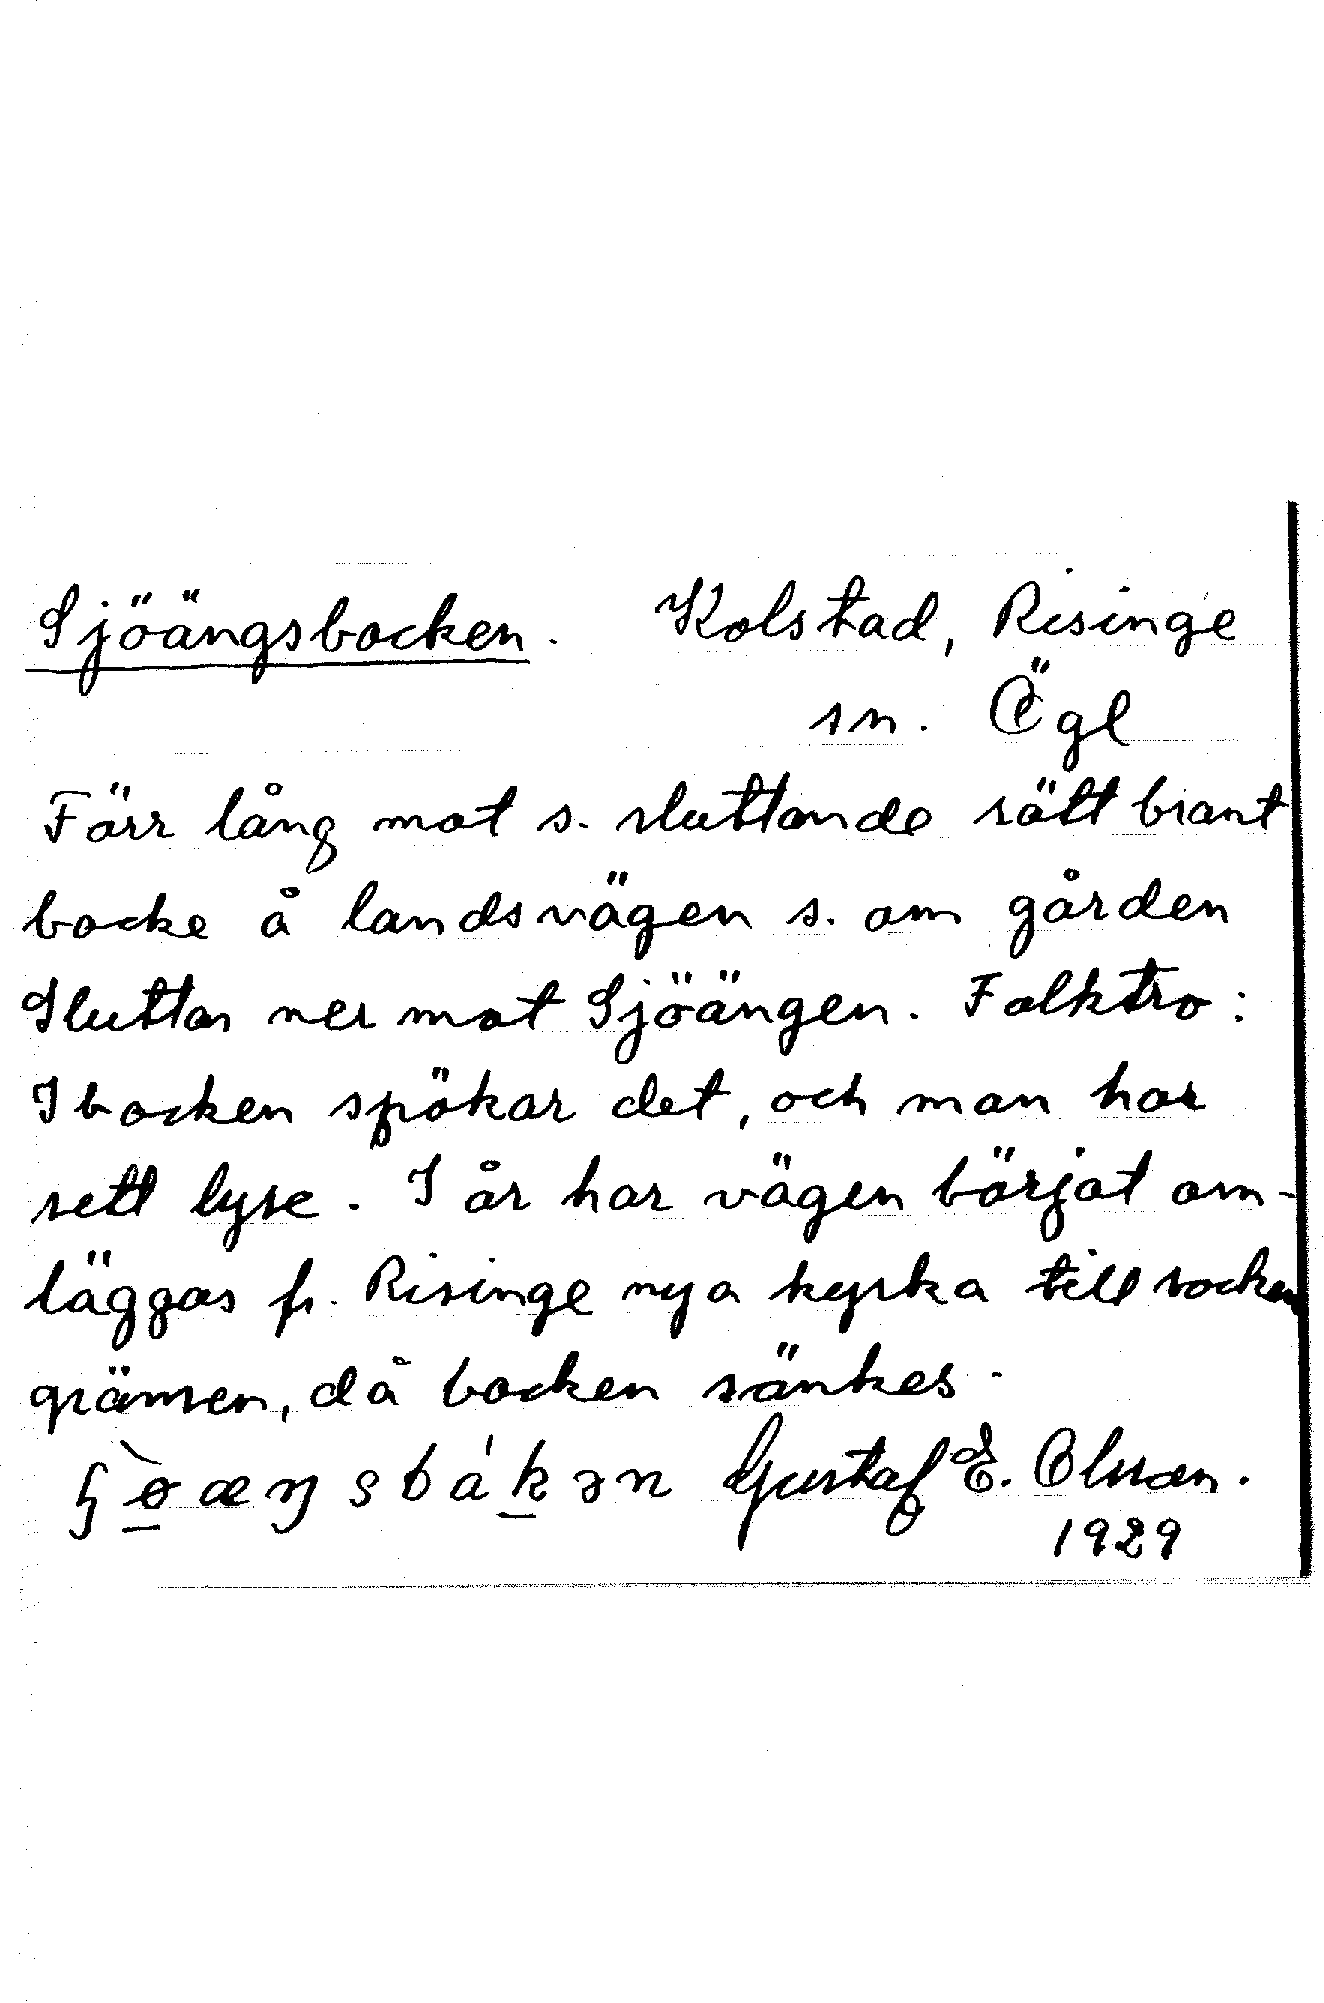 Sjöängsbacken. Kolstad, Risinge
sn. Ögl
Förr lång mot s. sluttande rätt brant
backe å landsvägen s. om gården
Sluttar ner mot Sjöängen. Folktro:
I backen spökar det, och man har
sett lyse. I år har vägen börjat om-
läggas fr. Risinge nya kyrka till socken
gränsen, då backen sänkes.
ɧø̀æŋsbákən Gustaf E. Olsson.
1929